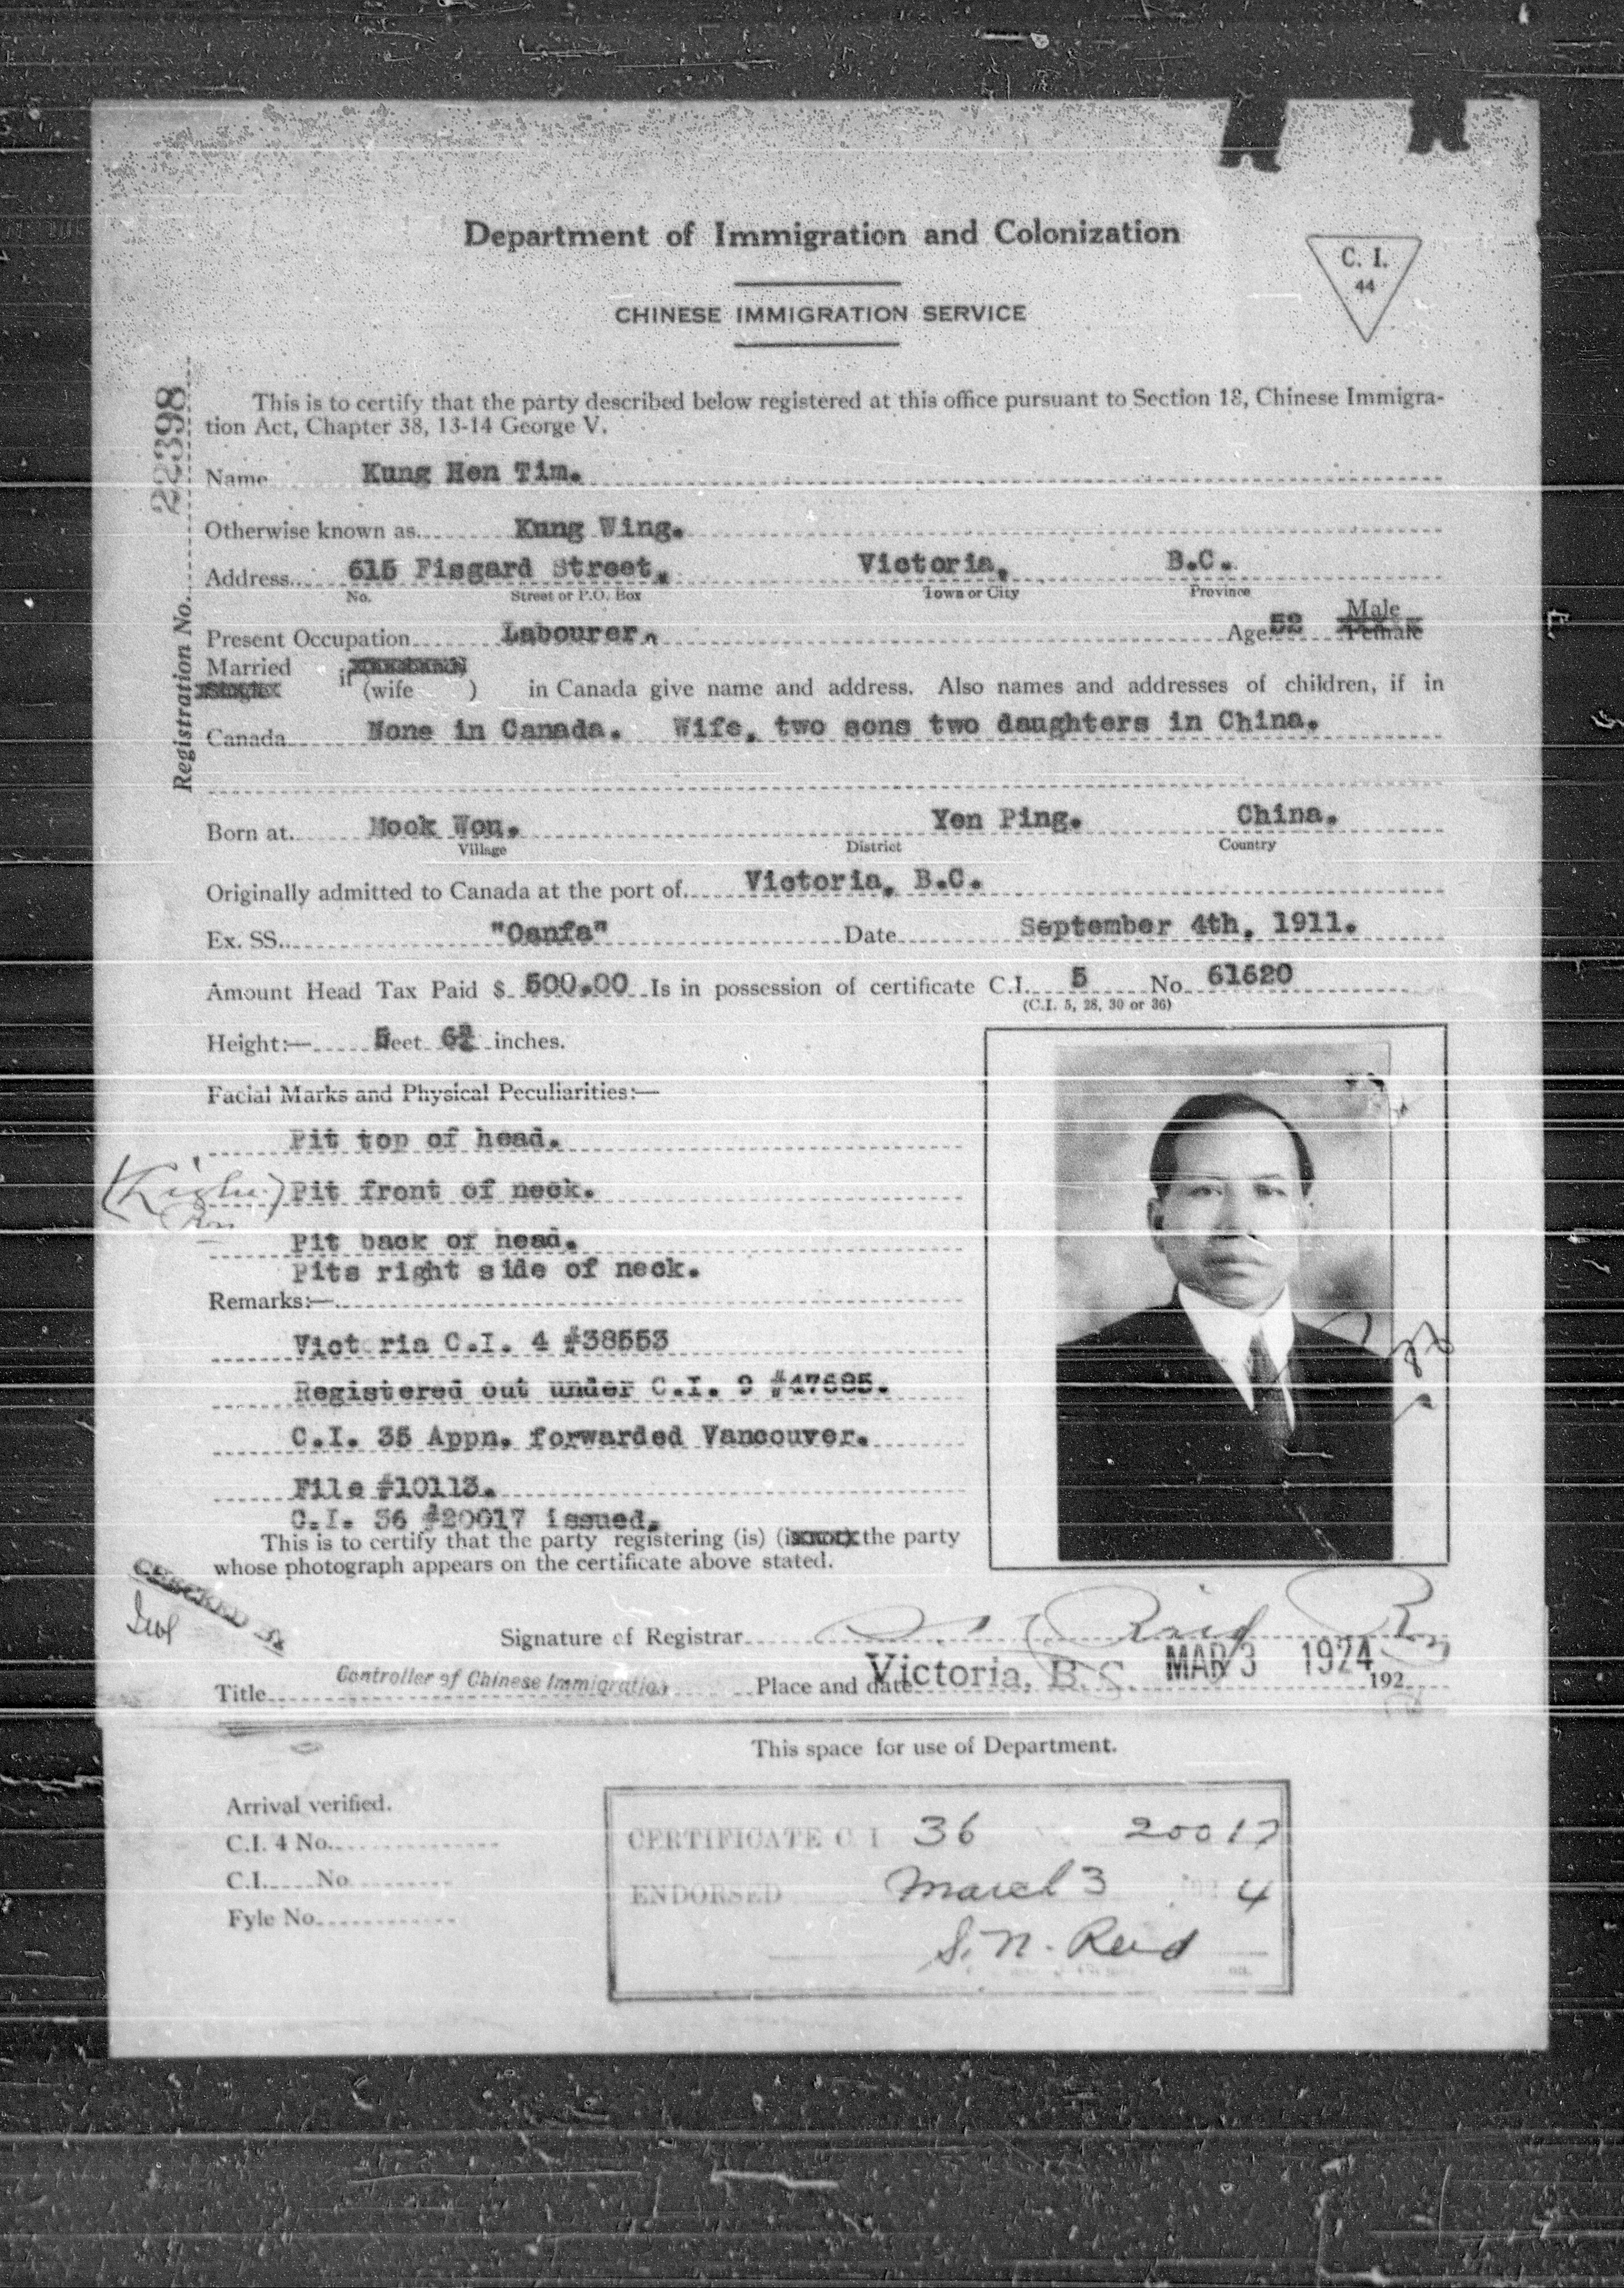 Department of Immigration and Colonization
C. I.
44
CHINESE IMMIGRATION SERVICE
Registration No. 22398
This is to certify that the party described below registered at this office pursuant to Section 18, Chinese Immigra-
tion Act, Chapter 38, 13-14 George V.
Name Kung Hen Tim.
Otherwise known as Kung Wing.
Address 615 Fisgard Street, Victoria, B.C.
No. Street or P.O. Box Town or City Province
Male
Present Occupation Labourer. Age 52 Female
Married
Single if (wife ) in Canada give name and address. Also names and addresses of children, if in
Canada None in Canada. Wife, two sons two daughters in China.
Born at Mook Won. Yen Ping. China.
Village District Country
Originally admitted to Canada at the port of Victoria, B.C.
Ex. SS. "Oanfa" Date September 4th, 1911.
Amount Head Tax Paid $ 500.00 Is in possession of certificate C.I. 5 No 61620
(C.I. 5, 28, 30 or 36)
Height:— 5 feet 6¾ inches.
Facial Marks and Physical Peculiarities:—
Pit top of head.
(Right) Pit front of neck.
Pit back of head.
Pits right side of neck.
Remarks:—
Victoria C.I. 4 #38553
Registered out under C.I. 9 #47685.
C.I. 35 Appn. forwarded Vancouver.
File #10113.
C.I. 36 #20017 issued.
This is to certify that the party registering (is) (is not) the party
whose photograph appears on the certificate above stated.
CHECKED
Signature of Registrar Reid
Title Controller of Chinese Immigration Place and date Victoria, B.C. MAR 3 1924 192
This space for use of Department.
Arrival verified.
C.I. 4 No.
C.I. No
Fyle No.
CERTIFICATE C. I. 36 20017
ENDORSED March 3 192 4
S. N. Reid